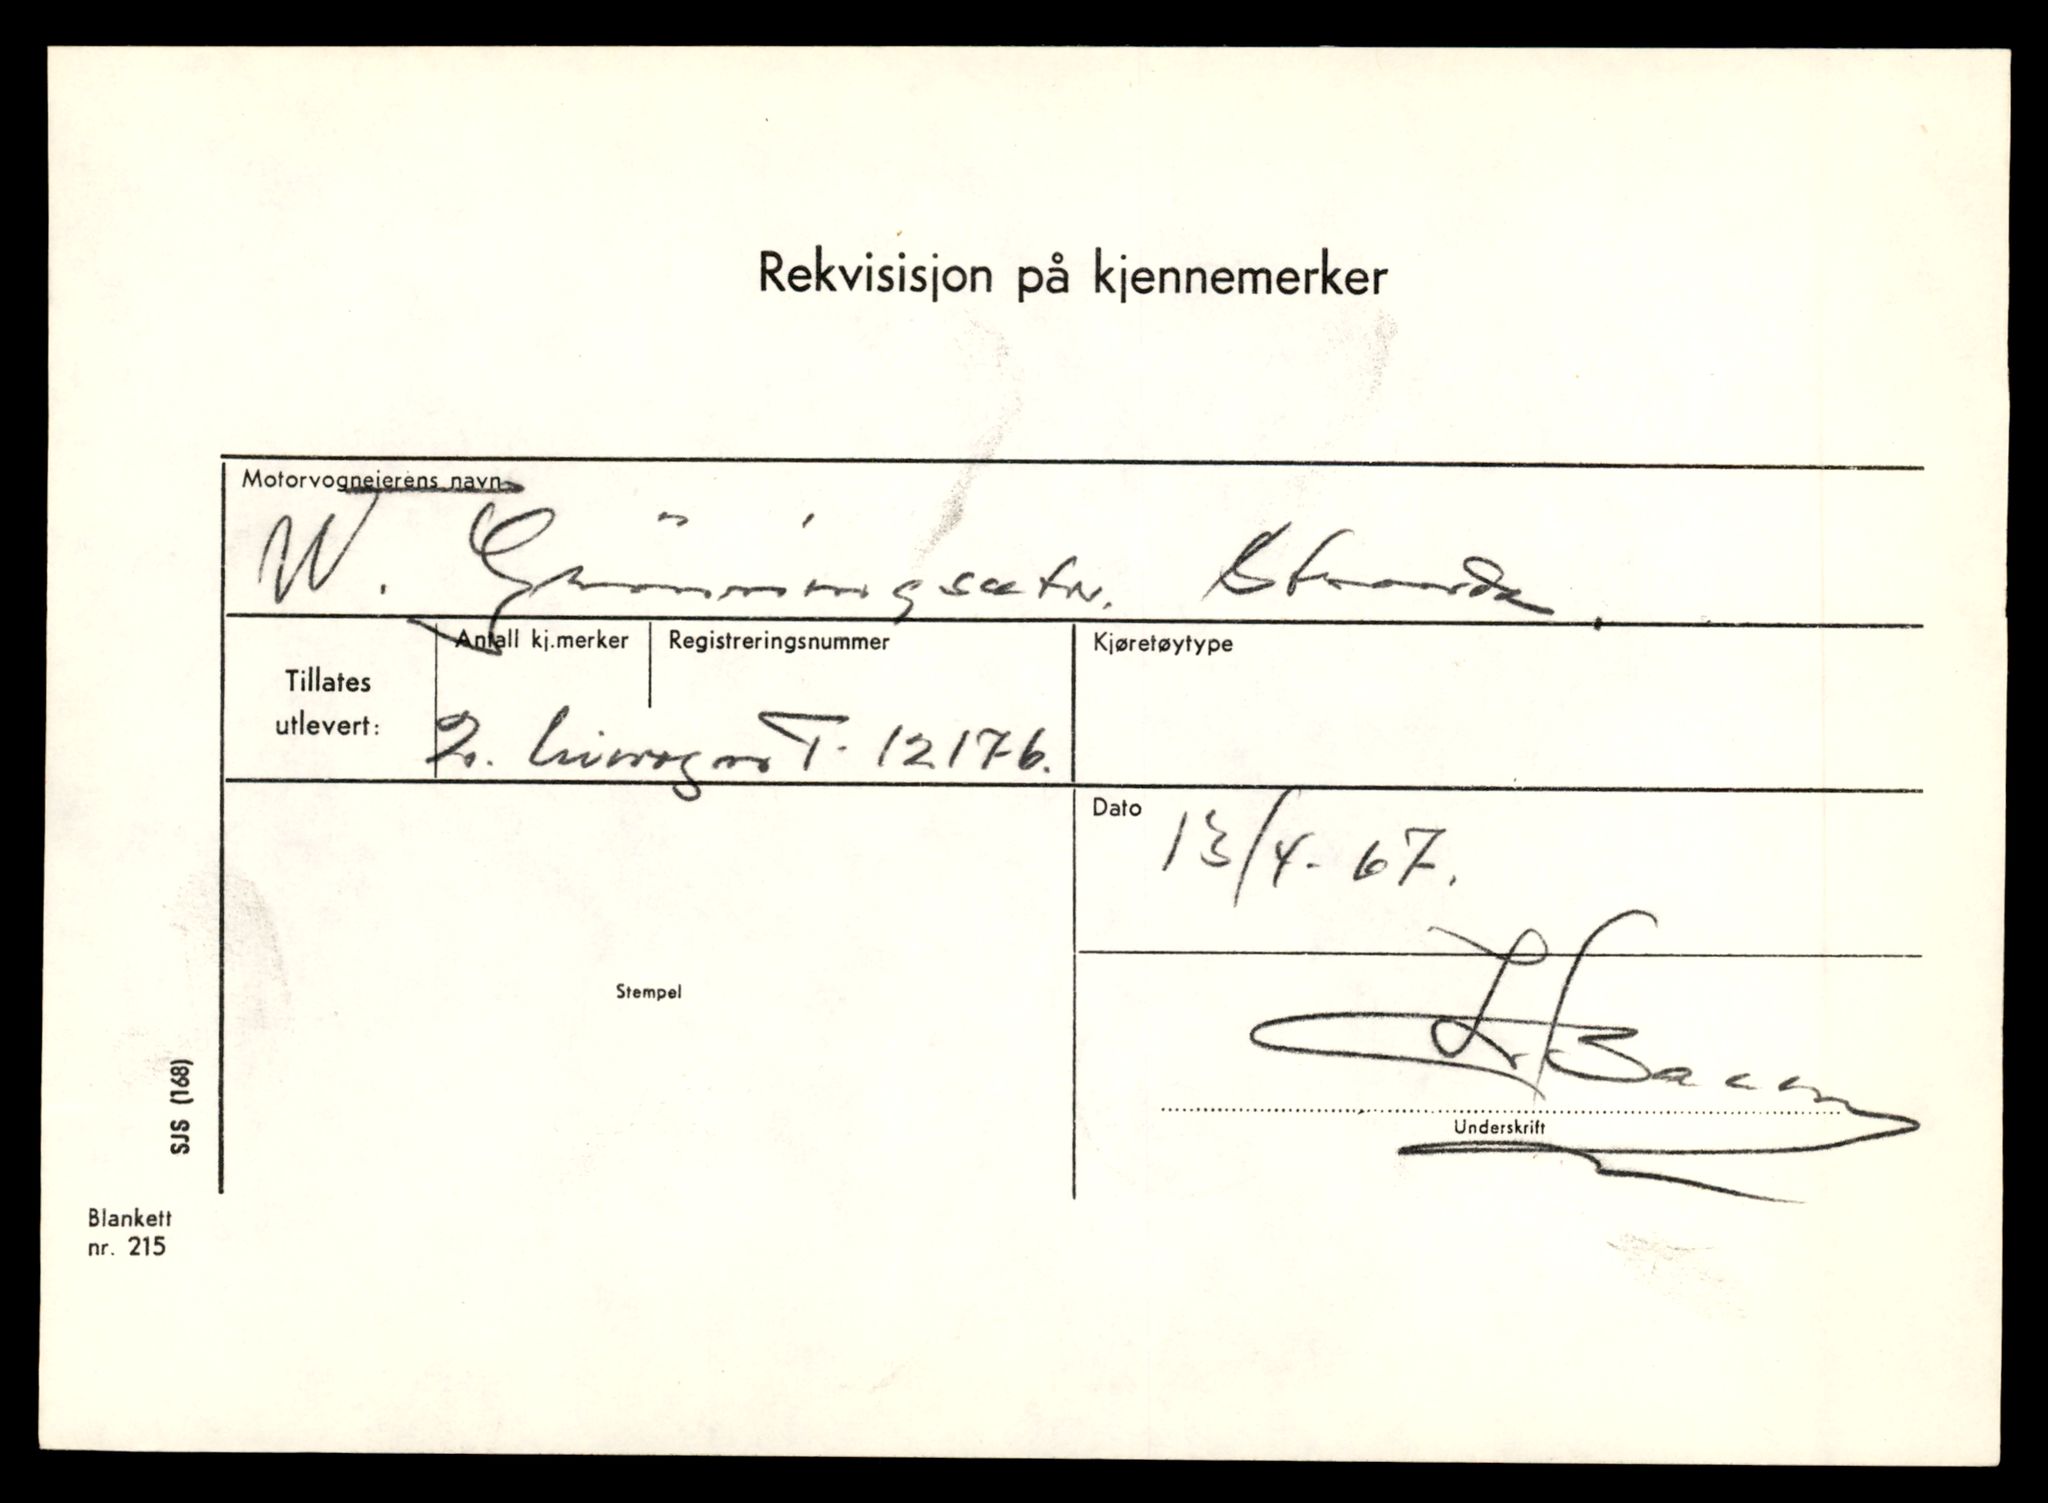 Rekvisisjon på kjennemerker
Motorvogneierens navn
W. Grönningsætr. Stranda.
Antall kj.merker Registreringsnummer Kjøretøytype
Tillates
utlevert:
2. T- 12176.
Dato 13/4-67.
Stempel
Underskrift
SJS (168)
Blankett
nr. 215